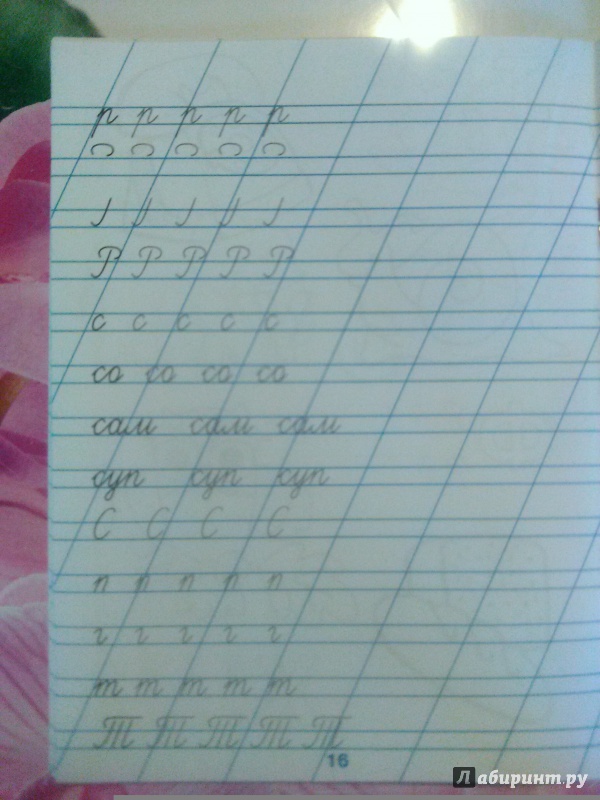 р р р р р
Р Р Р Р Р
с с с с с
со со со со
сам сам сам
суп суп суп
С С С С
п п п п п
г г г г г
т т т т т
Т Т Т Т Т
16
Лабиринт.ру